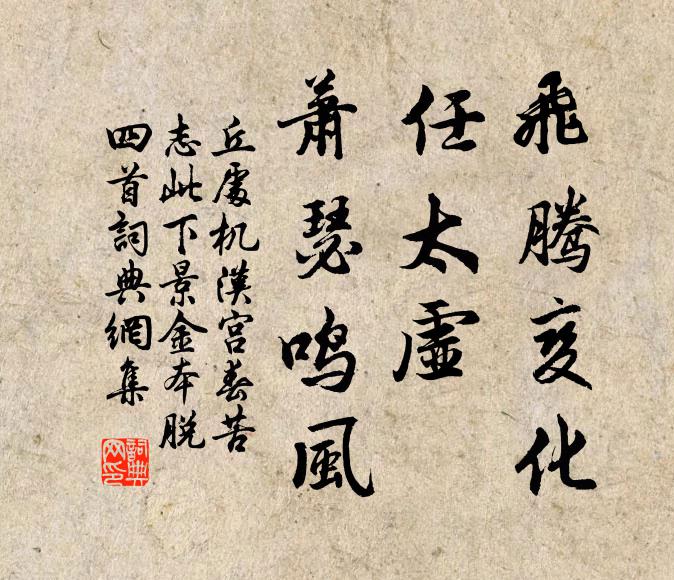 飛騰變化
任太虛
蕭瑟鳴風
丘處机漢宮春苦
志此下景金本脫
四首詞典網集
詞典
网印